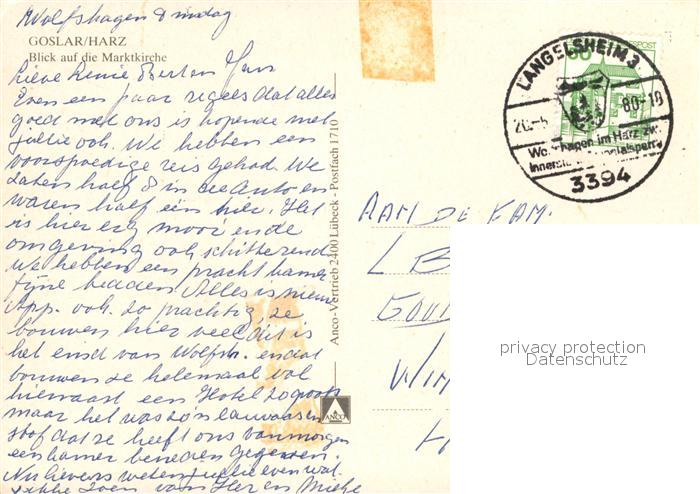 Wolfshagen Dinsdag
GOSLAR/HARZ
Blick auf die Marktkirche
Lieve Rinie Berten Jan
Even een paar regels dat alles
goed met ons is hopende met
jullie ook. We hebben een
voorspoedige reis gehad. We
zaten half 8 in de auto en
waren half een hier. Het
is hier erg mooi en de
omgeving ook schitterend
We hebben een pracht kamer
fijne bedden Alles is nieuw
App. ook. zo prachtig, ze
bouwen hier veel dit is
het eind van Wolfsh. en dat
bouwen ze helemaal vol
hiernaast een Hotel zo groot
maar het was zo'n lawaai en
stof dat ze heeft ons vanmorgen
een kamer beneden gegeven.
Nu lievers weten jullie even wat
zoen van Her en Miehe
Anco-Vertrieb 2400 Lübeck - Postfach 1710
ANCO
LANGELSHEIM 2
80-18
Wolfshagen im Harz zw.
Innerste- talsperre
3394
AAN DE FAM.
L B
GOU
WIM
privacy protection
Datenschutz